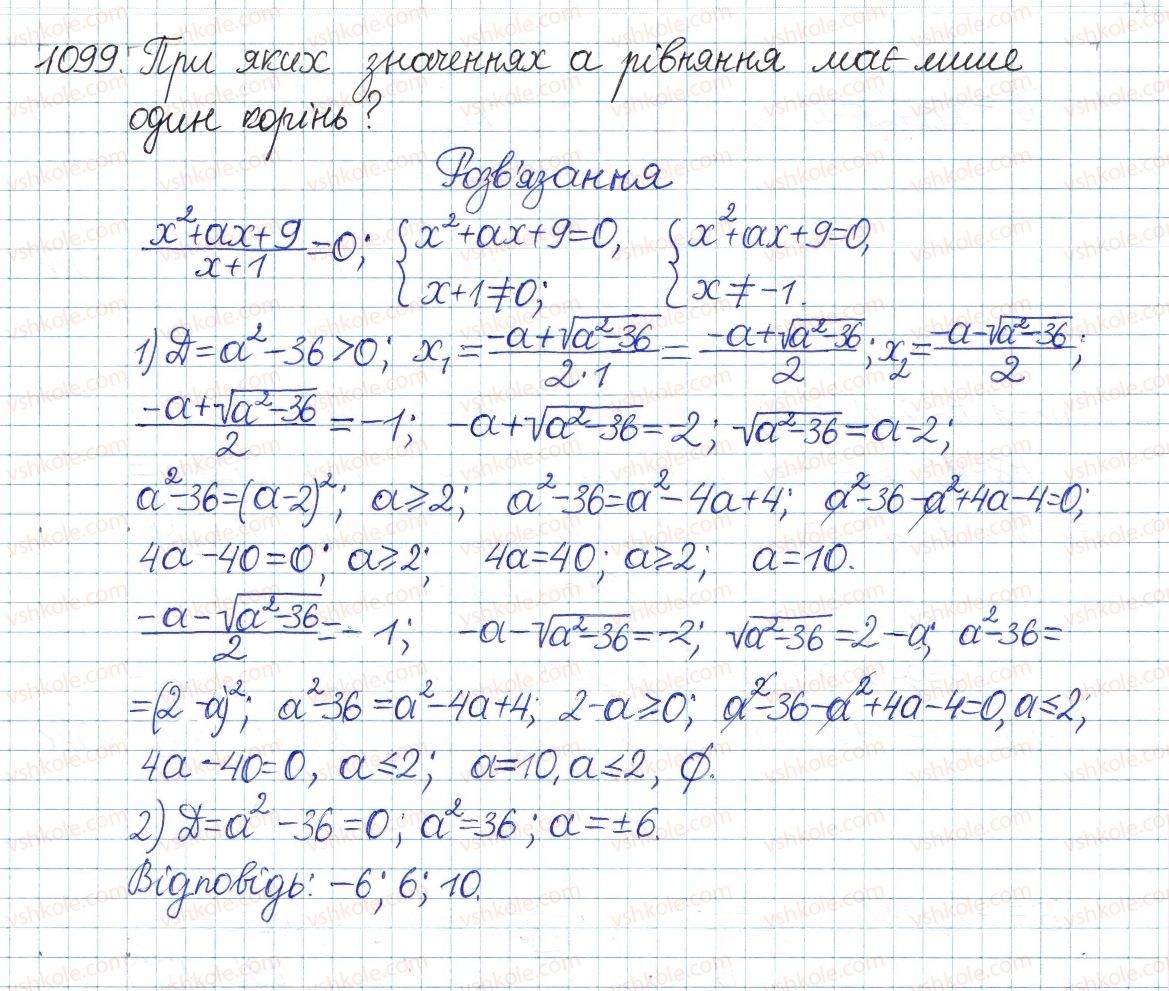 1099. При яких значеннях a рівняння має лише
один корінь?
Розв'язання
(x²+ax+9)/(x+1)=0; {x²+ax+9=0, x+1≠0; {x²+ax+9=0, x≠-1.
1) Д=a²-36>0; x₁=(-a+√(a²-36))/(2·1)=(-a+√(a²-36))/2; x₂=(-a-√(a²-36))/2;
(-a+√(a²-36))/2=-1; -a+√(a²-36)=-2; √(a²-36)=a-2;
a²-36=(a-2)²; a≥2; a²-36=a²-4a+4; a²-36-a²+4a-4=0;
4a-40=0; a≥2; 4a=40; a≥2; a=10.
(-a-√(a²-36))/2=-1; -a-√(a²-36)=-2; √(a²-36)=2-a; a²-36=
=(2-a)²; a²-36=a²-4a+4; 2-a≥0; a²-36-a²+4a-4=0, a≤2;
4a-40=0, a≤2; a=10, a≤2, ∅.
2) Д=a²-36=0; a²=36; a=±6.
Відповідь: -6; 6; 10.